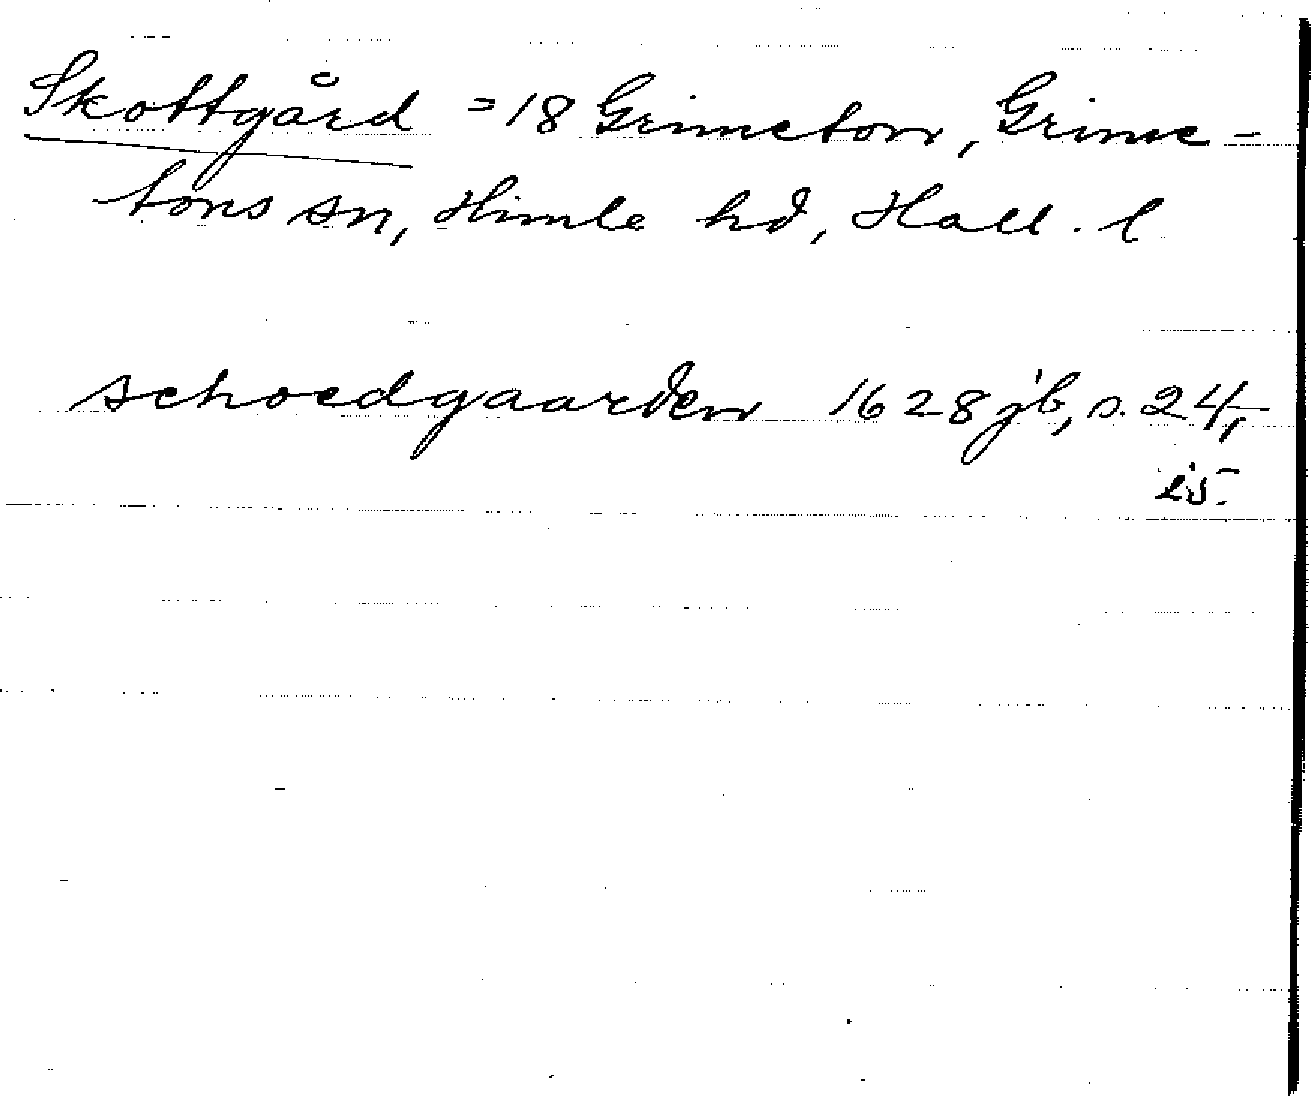 Skottgård = 18 Grimeton, Grime-
tons sn, Himle hd, Hall. l
schoedgaarden 1628 jb, s. 24,
25.